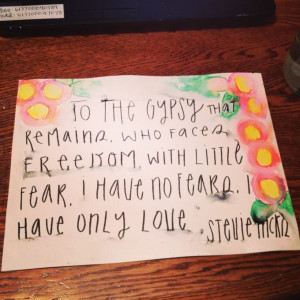 TO THE GYPSY THAT
REMAINS. WHO FACES
FREEDOM. WITH LITTLE
FEAR. I HAVE NO FEARS. I
HAVE ONLY LOVE.
STEVIE NICKS